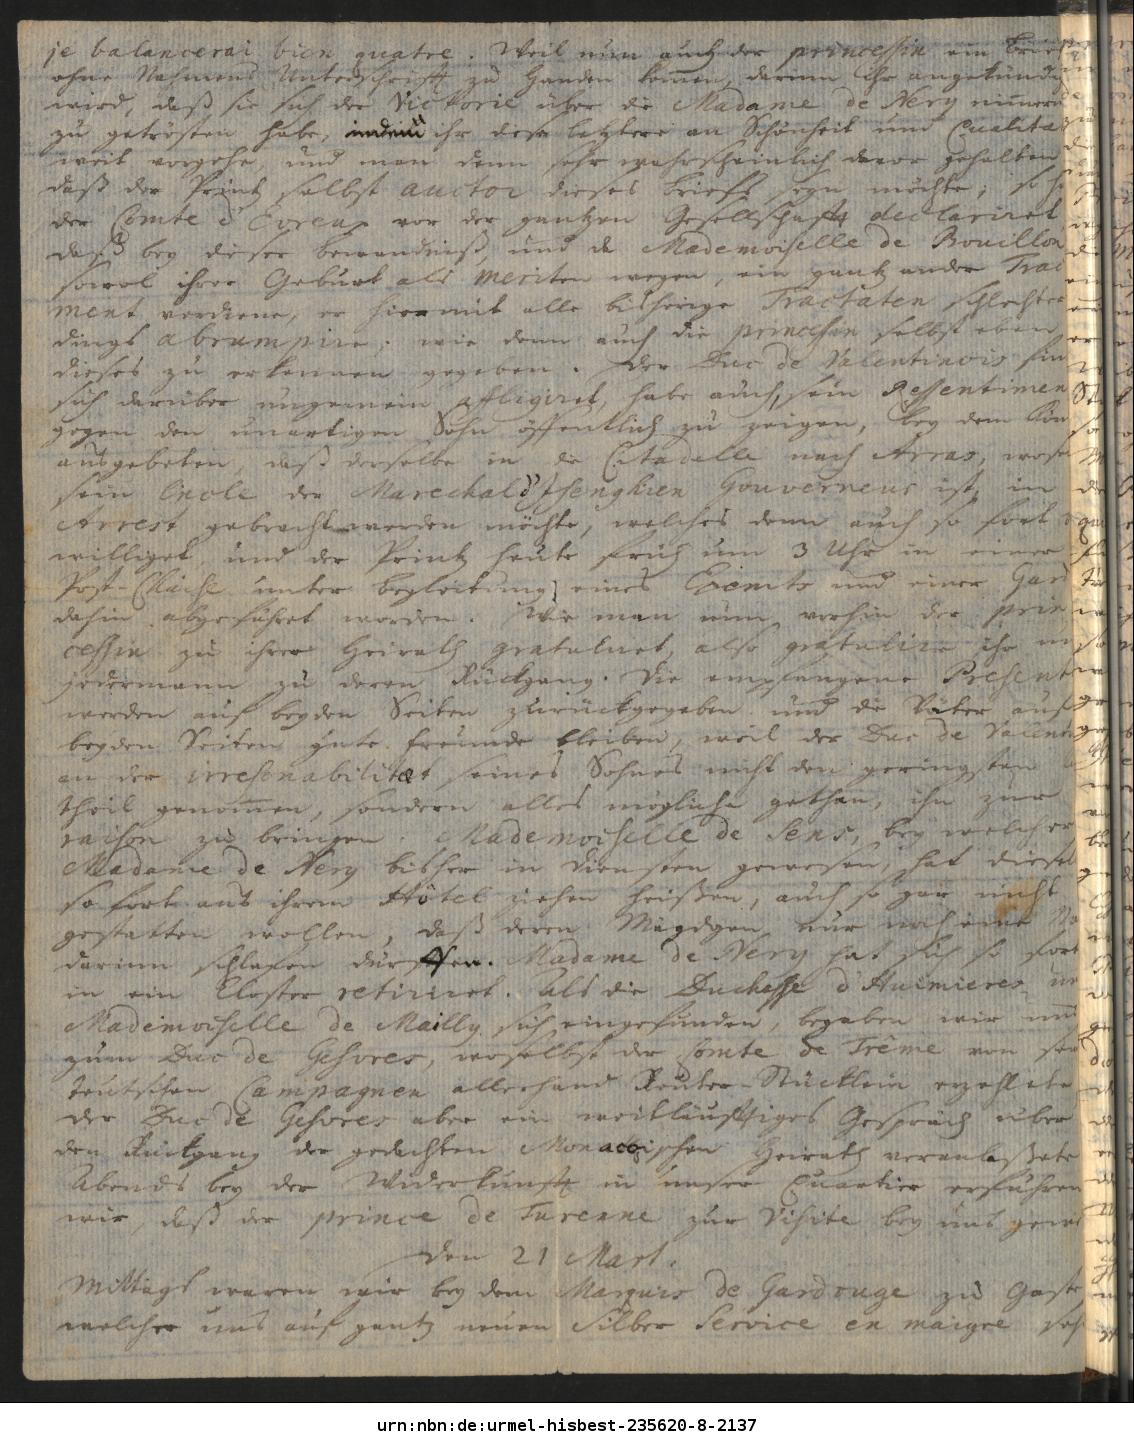 je balancerai bien quatre. Weil nun auch der princessin ein Brief
ohne Nahmens Unterschrifft zu Handen kommen, darinn ihr angekündi
wird, daß sie sich der Victorie über die Madame de Nery nimmer
zu getrösten habe, indem ihr diese letztere an Schönheit und Qualitæ
weit vorgehe, und man denn sehr wahrscheinlich davor gehalten
daß der Printz selbst auctor dieses Briefs seyn möchte; so h
der Comte d'Evreux vor der gantzen Gesellschafft declariret
daß bey dieser bewandniß, und da Mademoiselle de Bouillon
sowol ihrer Geburt als meriten wegen, ein gantz ander Trac
ment verdiene, er hiermit alle bißherige Tractaten schlechter
dings abrumpire. wie denn auch die princessin selbst eben
dieses zu erkennen gegeben. Der Duc de Valentinois fin
sich darüber ungemein affligiret, habe auch, sein Ressentimen
gegen den unartigen Sohn öffentlich zu zeigen, bey dem Kön
ausgebeten, daß derselbe in die Citadelle nach Arras, wose
sein Oncle der Marechal d'Isenghien Gouverneur ist, in
Arrest gebracht werden möchte, welches denn auch so fort
williget und der Printz heute früh um 3 Uhr in einer
Post-Chaise unter begleitung eines Exemts und einer Gard
dahin abgeführet worden. Wie man nun vorhin der prin
cessin zu ihrer Heirath gratuliret, also gratulire ihr
jedermann zu deren Rückgang. Die empfangene Present
werden auf beyden Seiten zurückgegeben und die Väter auf
beyden Seiten gute Freunde bleiben, weil der Duc de Valenti
an der irresonabilitæt seines Sohnes nicht den geringsten
theil genommen, sondern alles mögliche gethan, ihn zur
raison zu bringen. Mademoiselle de Sens, bey welcher
Madame de Nery bisher in Diensten gewesen, hat diesel
so fort aus ihrem Hôtel ziehen heißen, auch so gar nicht
gestatten wollen, daß deren Mägdgen nur noch eine Na
darinn schlafen dürffen. Madame de Nery hat sich so fort
in ein Closter retiriret. Als die Duchesse d'Humieres un
Mademoiselle de Mailly sich eingefunden, begaben wir un
zum Duc de Gesvres, woselbst der Comte de Trême von sei
teutschen Campagnen allerhand Reuter-Stücklein erzehlete
der Duc de Gesvres aber ein weitläufftiges Gespräch über
den Rückgang der gedachten Monacoischen Heirath veranlaßete
Abends bey der Widerkunft in unser Quartier erfuhren
wir, daß der prince de Turenne zur Visite bey uns gewe
Den 21 Mart.
Mittags waren wir bey dem Marquis de Gardouge zu Gaste
welcher uns auf gantz neuen Silber Service en maigre seh
urn:nbn:de:urmel-hisbest-235620-8-2137